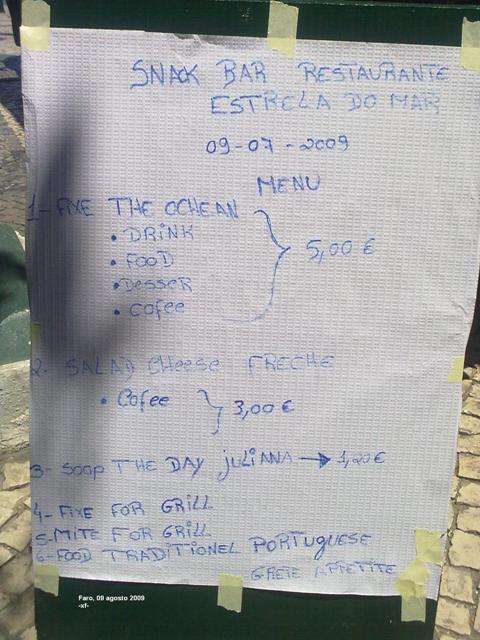 SNACK BAR RESTAURANTE
ESTRELA DO MAR
09-07-2009
MENU
1- FIXE THE OCHEAN
• DRINK
• FOOD
• DESSER
• Cofee
5,00 €
2- SALAD CHeese FRECHE
• Cofee
3,00 €
3- SOOP THE DAY JULIANA → 1,20 €
4- FIXE FOR GRILL
5- MITE FOR GRILL
6- FOOD TRADITIONEL PORTUGUESE
GRETE APPETITE
Faro, 09 agosto 2009
-xf-